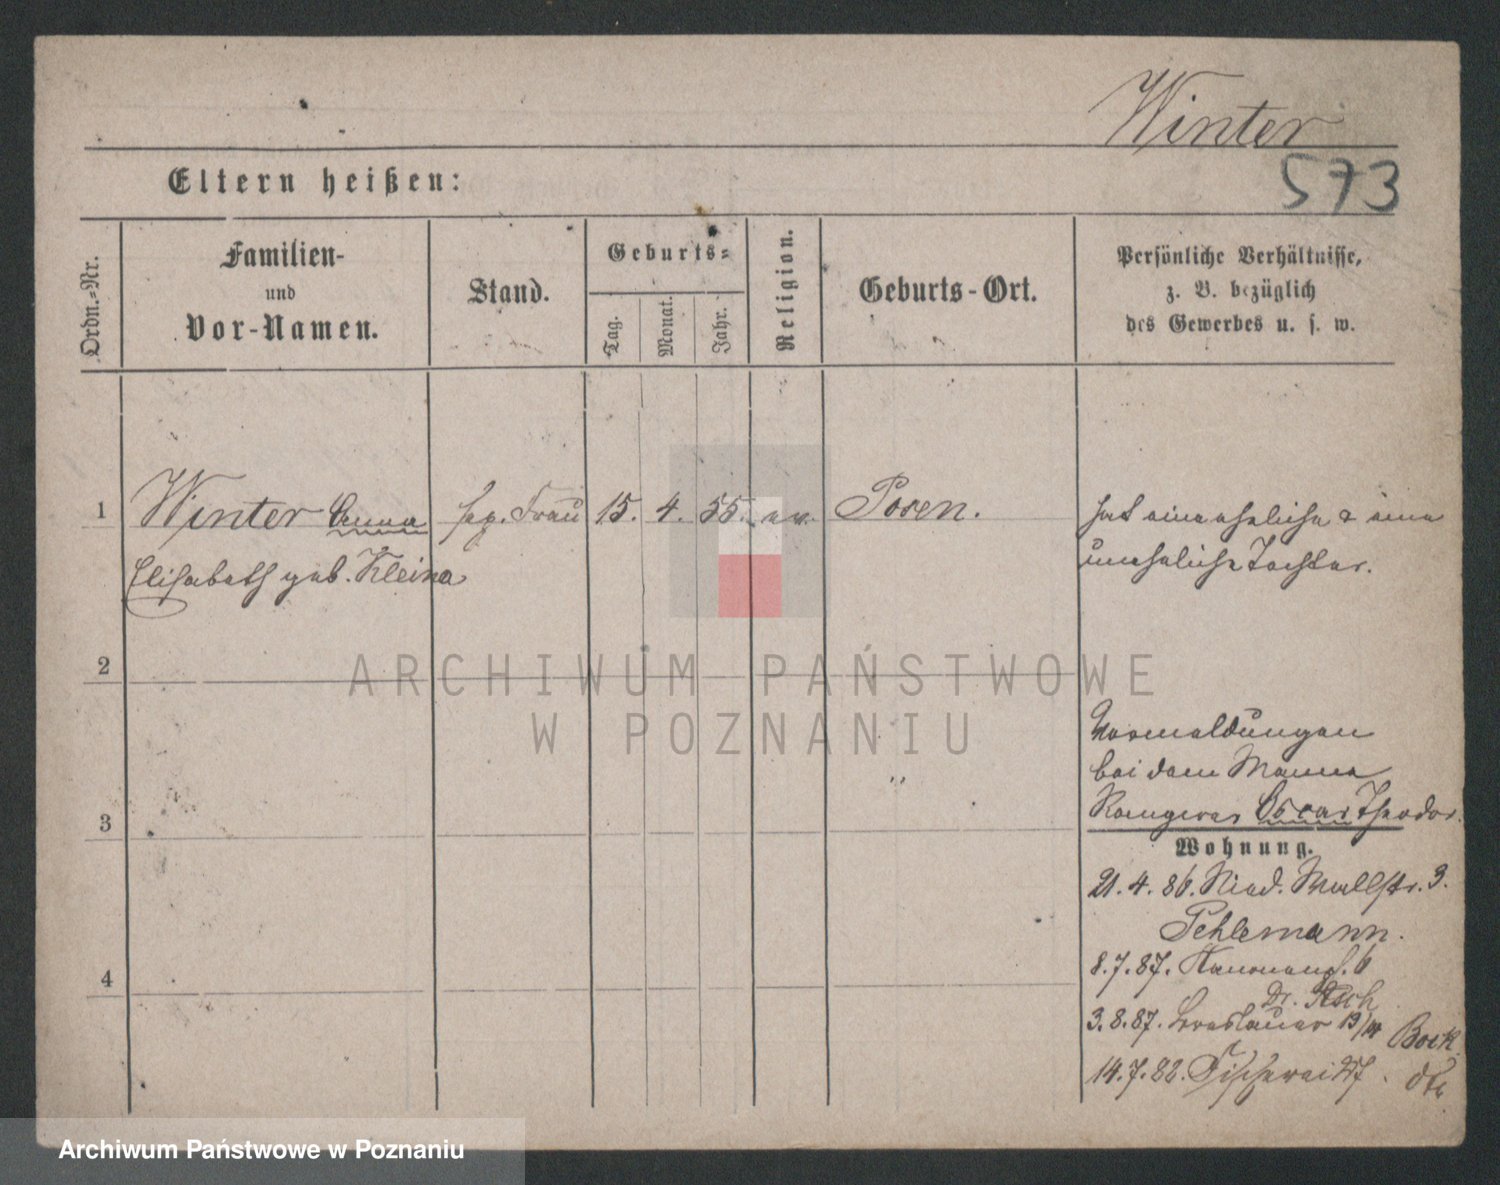 Winter
573
Eltern heißen:
Ordn.-Nr.
Familien-
und
Vor-Namen.
Stand.
Geburts-
Tag.
Monat.
Jahr.
Religion.
Geburts-Ort.
Persönliche Verhältnisse,
z. B. bezüglich
des Gewerbes u. s. w.
1
Winter Anna
Elisabeth geb. Kleina
sep. Frau
15.
4.
55.
ev.
Posen.
hat eine eheliche & eine
uneheliche Tochter.
2
3
4
Vormeldungen
bei dem Manne
Oscar Theodor.
Wohnung.
21. 4. 86. Nied. Wallstr. 3.
Pehlemann.
8. 7. 87. 6
Dr.
3. 8. 87. Breslauer 13/14 Bock.
14. 7. 88. Fischerei 27.
ARCHIWUM PAŃSTWOWE
W POZNANIU
Archiwum Państwowe w Poznaniu